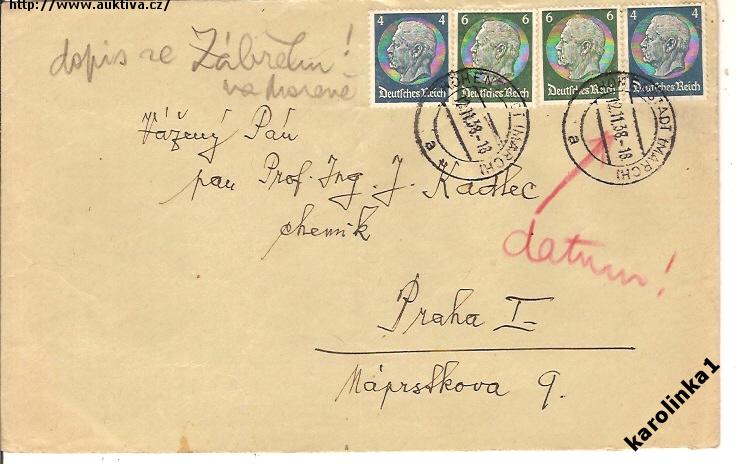 http://www.auktiva.cz/
dopis ze Zábřehu!
na Moravě
4 4 6 6 4 4
Deutsches Reich Deutsches Reich Deutsches Reich Deutsches Reich
12.11.38.-18
a
12.11.38.-18
STADT (MARCH)
a
Vážený Pán
pan Prof. Ing. J. Kadlec
chemik
datum!
Praha I.
Náprstkova 9.
karolinka1